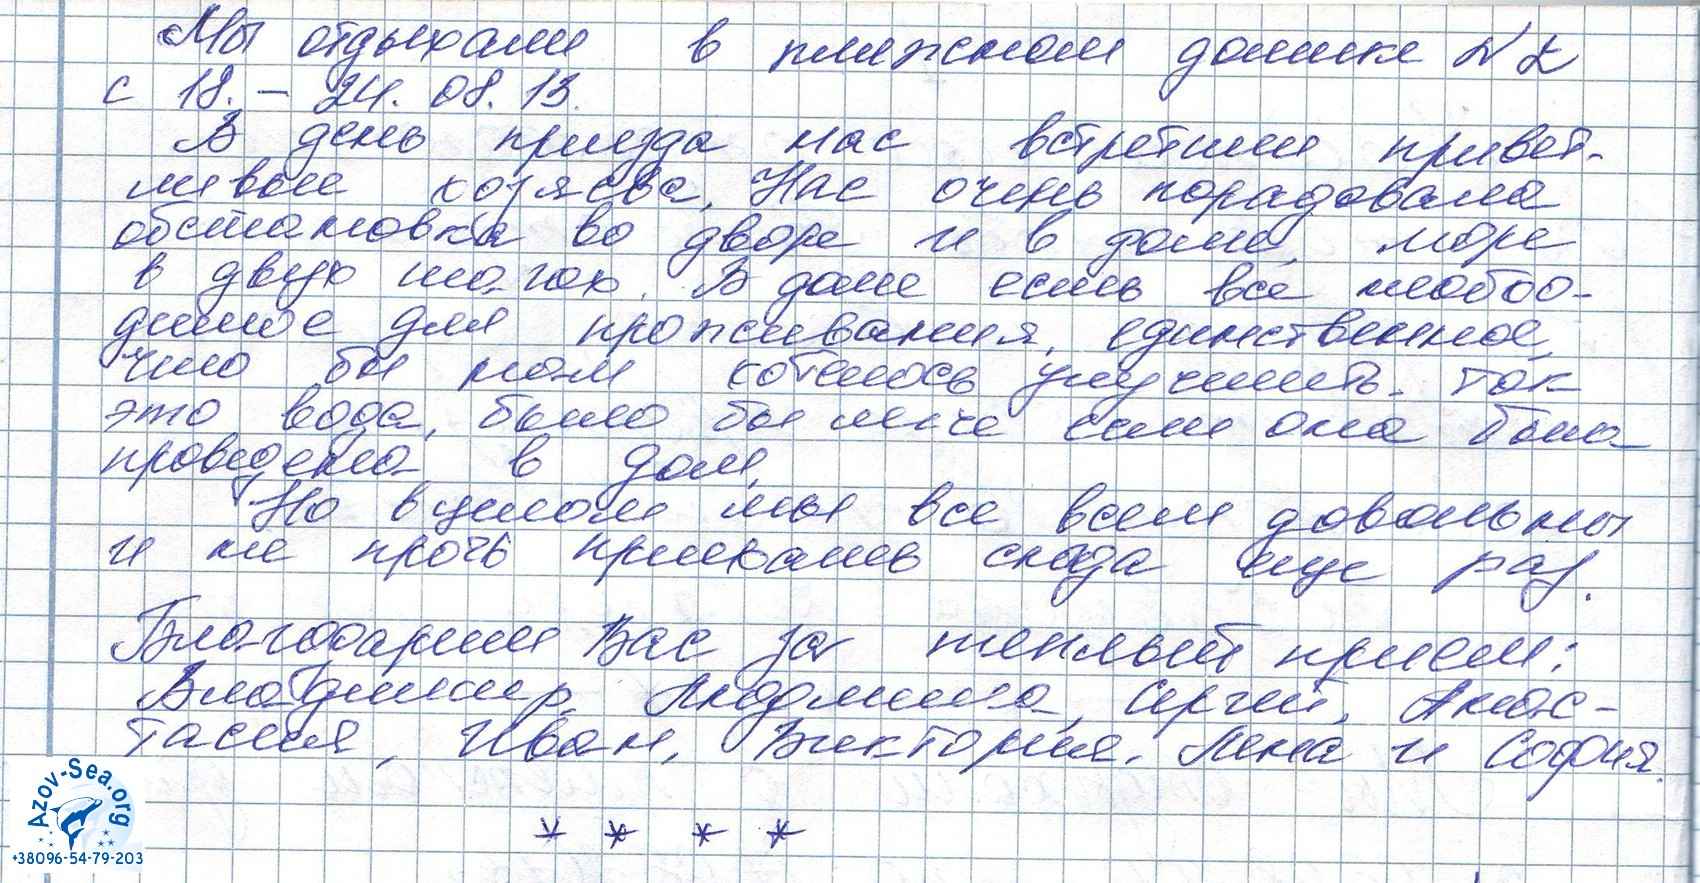 Мы отдыхали в пляжном домике №2
с 18. – 24. 08. 13.
В день приезда нас встретили привет-
ливые хозяева. Нас очень порадовала
обстановка во дворе и в доме, море
в двух шагах. В доме есть все необхо-
димое для проживания, единственное,
что бы нам хотелось улучшить. так
это вода, было бы легче если она была
проведена в дом.
Но в целом мы все всем довольны
и не прочь приехать сюда еще раз.
Благодарим Вас за теплый прием:
Владимир, Людмила, Сергей, Анас-
тасия, Иван, Виктория, Лена и София.
* * * *
Azov-Sea.org
+38096-54-79-203